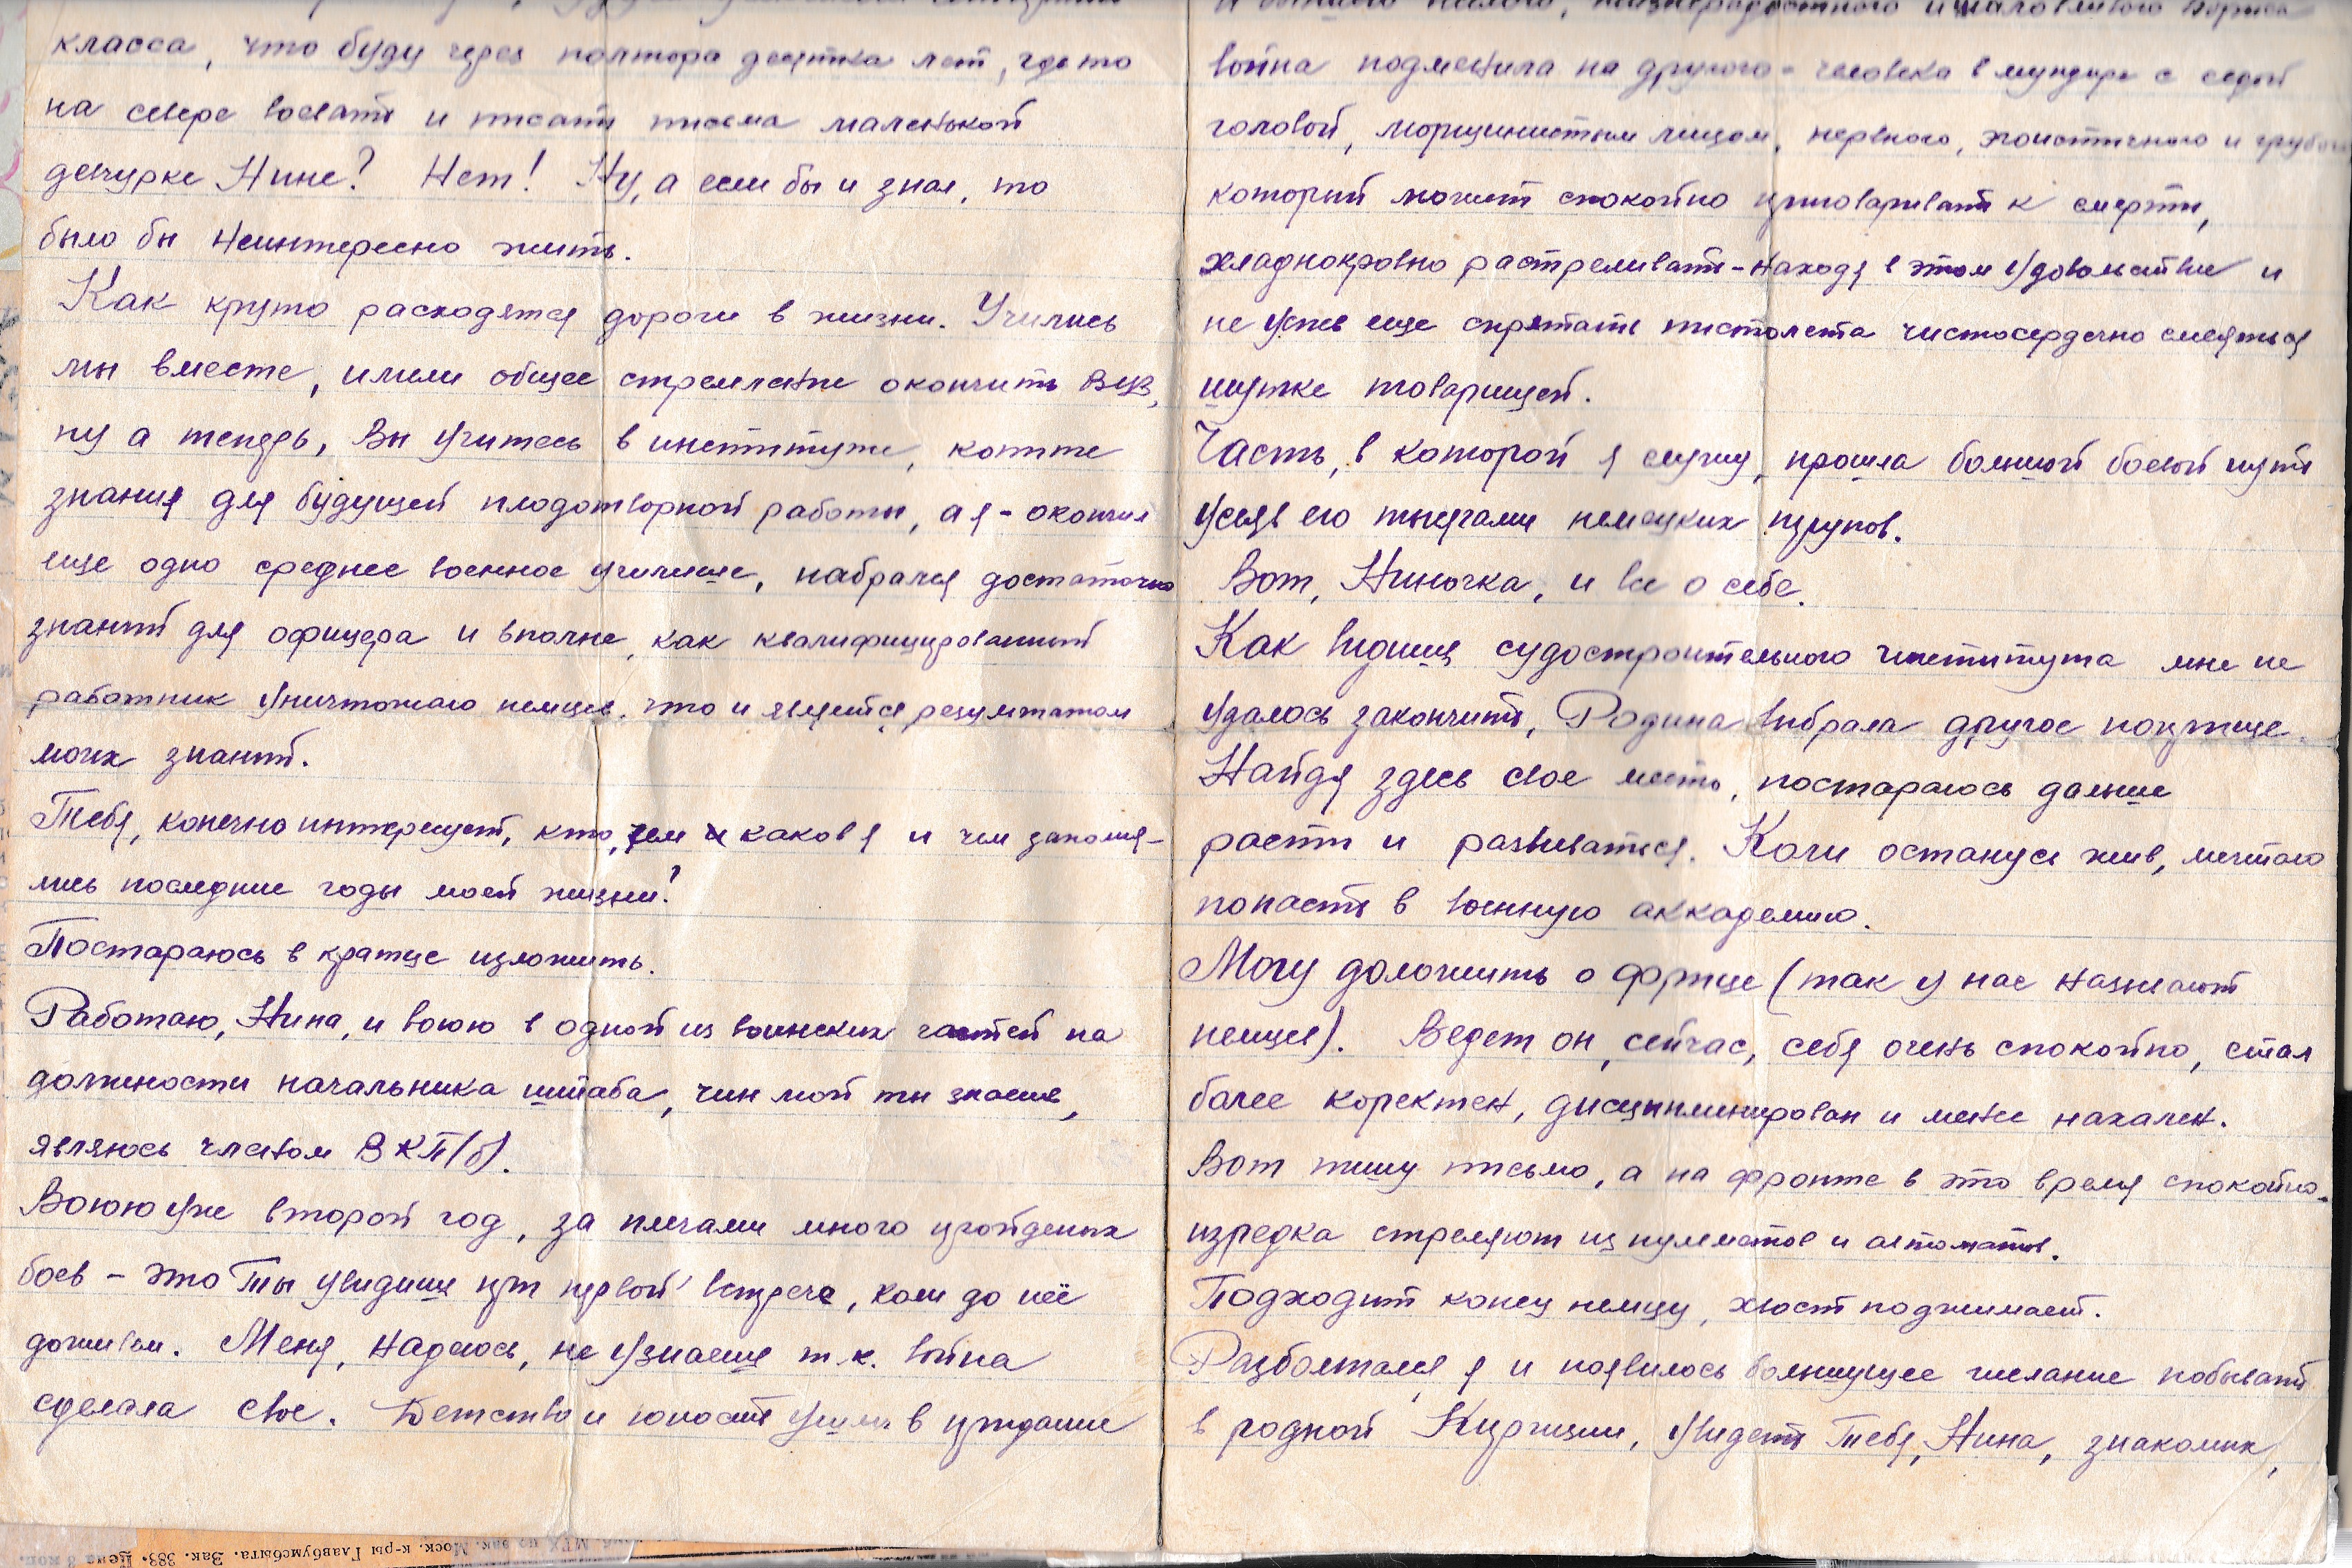 класса, что буду через полтора десятка лет, где то
на севере воевать и писать письма маленькой
дечурке Нине? Нет! Ну, а если бы и знал, то
было бы неинтересно жить.
Как круто расходятся дороги в жизни. Учились
мы вместе, имели общее стремление окончить ВУЗ,
ну а теперь, Вы учитесь в институте, копите
знания для будущей плодотворной работы, а я - окончил
еще одно среднее военное училище, набрался достаточно
знаний для офицера и вполне, как квалифицированный
работник уничтожаю немцев, что и является результатом
моих знаний.
Тебя, конечно интересует, кто, чем и каков я и чем заполня-
лись последние годы моей жизни?
Постараюсь в кратце изложить.
Работаю, Нина, и воюю в одной из воинских частей на
должности начальника штаба, чин мой ты знаешь,
являюсь членом ВКП(б).
Воюю уже второй год, за плечами много пройденых
боев - это Ты увидишь при первой встрече, коли до неё
доживем. Меня, надеюсь, не узнаешь т.к. война
сделала свое. Детство и юность ушли в предание
и бывшего милого, жизнерадостного и шаловливого Бориса
война подменила на другого - человека в мундире с седой
головой, морщинистым лицом, нервного, эгоистичного и грубого
который может спокойно приговаривать к смерти,
хладнокровно растреливать - находя в этом удовольствие и
не успев еще спрятать пистолета чистосердечно смеяться
шутке товарищей.
Часть, в которой я служу, прошла большой боевой путь
усеяв его тысячами немецких трупов.
Вот, Ниночка, и все о себе.
Как видишь судостроительного института мне не
удалось закончить, Родина выбрала другое поприще.
Найдя здесь свое место, постараюсь дальше
расти и развиваться. Коли останусь жив, мечтаю
попасть в военную аккадемию.
Могу доложить о фрице (так у нас называют
немцев). Ведет он, сейчас, себя очень спокойно, стал
более коректен, дисциплинирован и менее нахален.
Вот пишу письмо, а на фронте в это время спокойно.
изредка стреляют из пулеметов и автоматов.
Подходит конец немцу, хвост поджимает.
Разболтался я и появилось большущее желание побывать
в родной Киргизии, увидеть Тебя, Нина, знакомых,
Моск. к-ры Главбумсбыта. Зак. 383. Цена 3 коп.